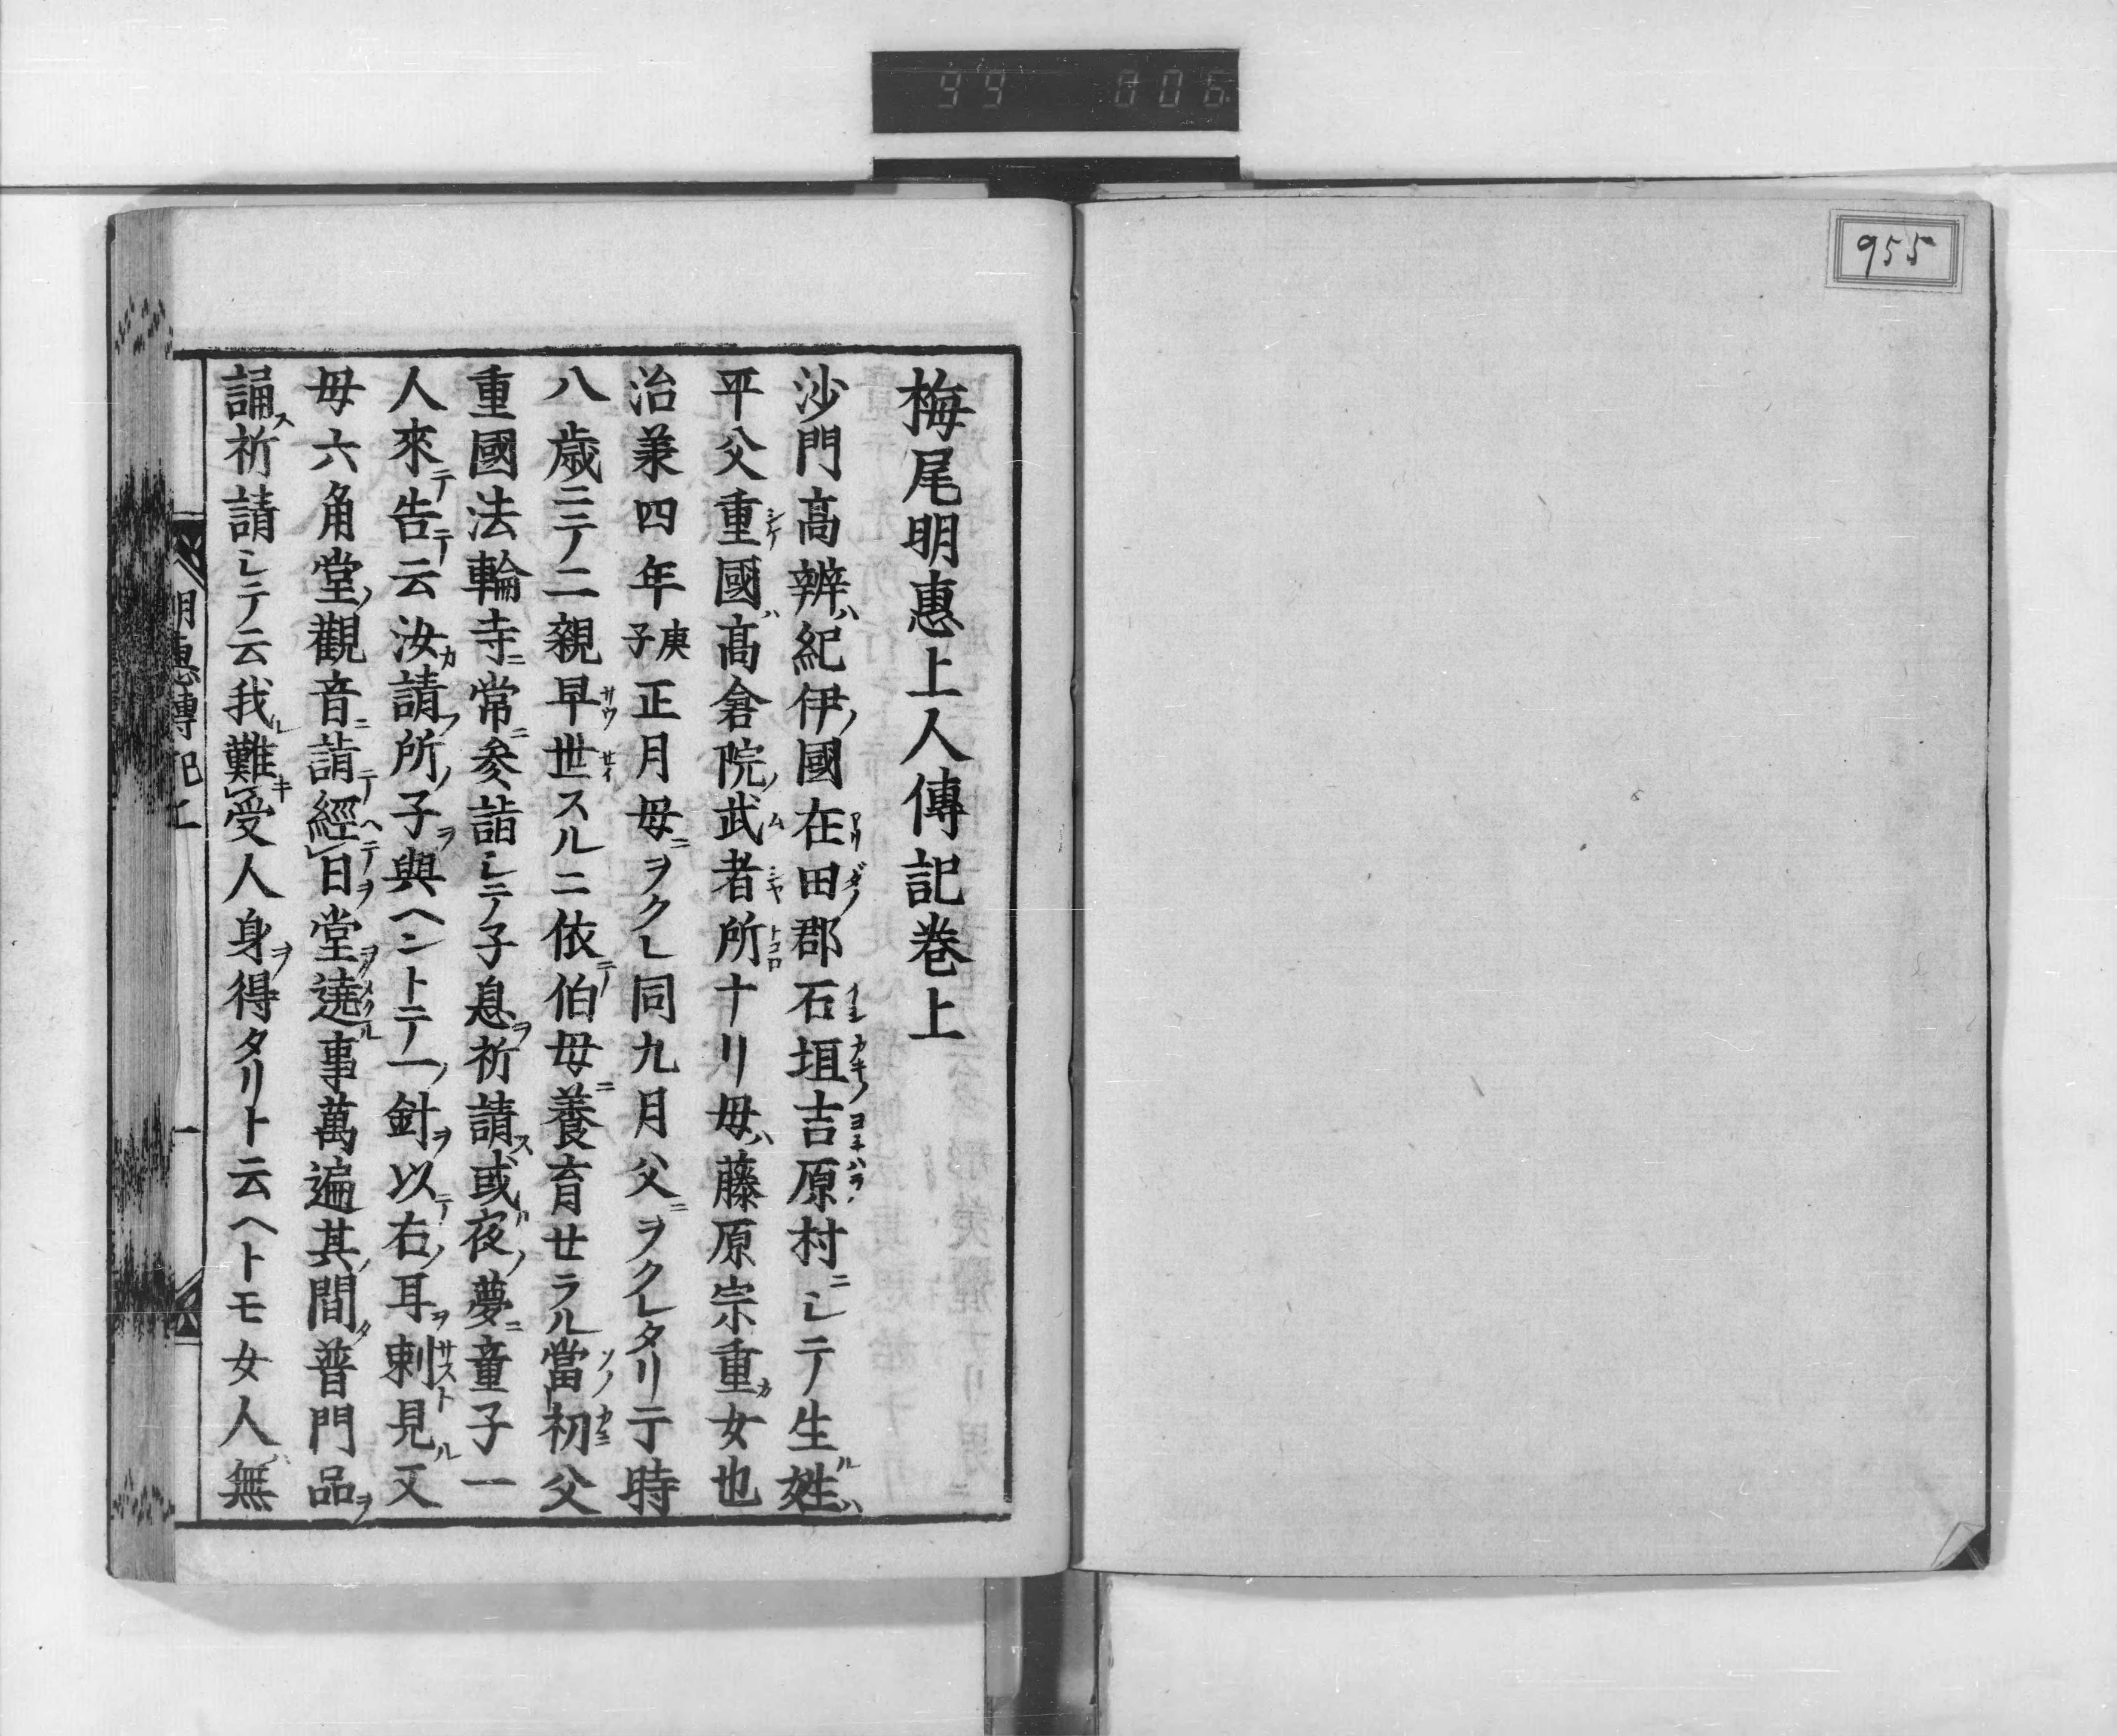 955
99 006
梅尾明惠上人傳記巻上
沙門高辨ハ紀伊ノ國在田郡石垣吉原村ニシテ生ル姓ハ
平父重國ハ高倉院ノ武者所ナリ母ハ藤原宗重カ女也
治兼四年庚子正月母ニヲクレ同九月父ニヲクレタリ于時
八歳ニテ二親早世スルニ依テ伯母ニ養育セラル當初父
重國法輪寺ニ常ニ參詣シテ子息ヲ祈請ス或ル夜ノ夢ニ童子一
人來テ告テ云汝カ請フ所ノ子ヲ與ヘントテ一ノ針ヲ以テ右ノ耳ヲ刺スト見ル又
母六角堂ノ觀音ニ詣テ經ヘテ日ヲ堂ヲ遶メクル事萬遍其ノ間タ普門品ヲ
誦ス祈請シテ云我レ難キ受人身ヲ得タリト云ヘトモ女人ハ無
明惠傳記上 一